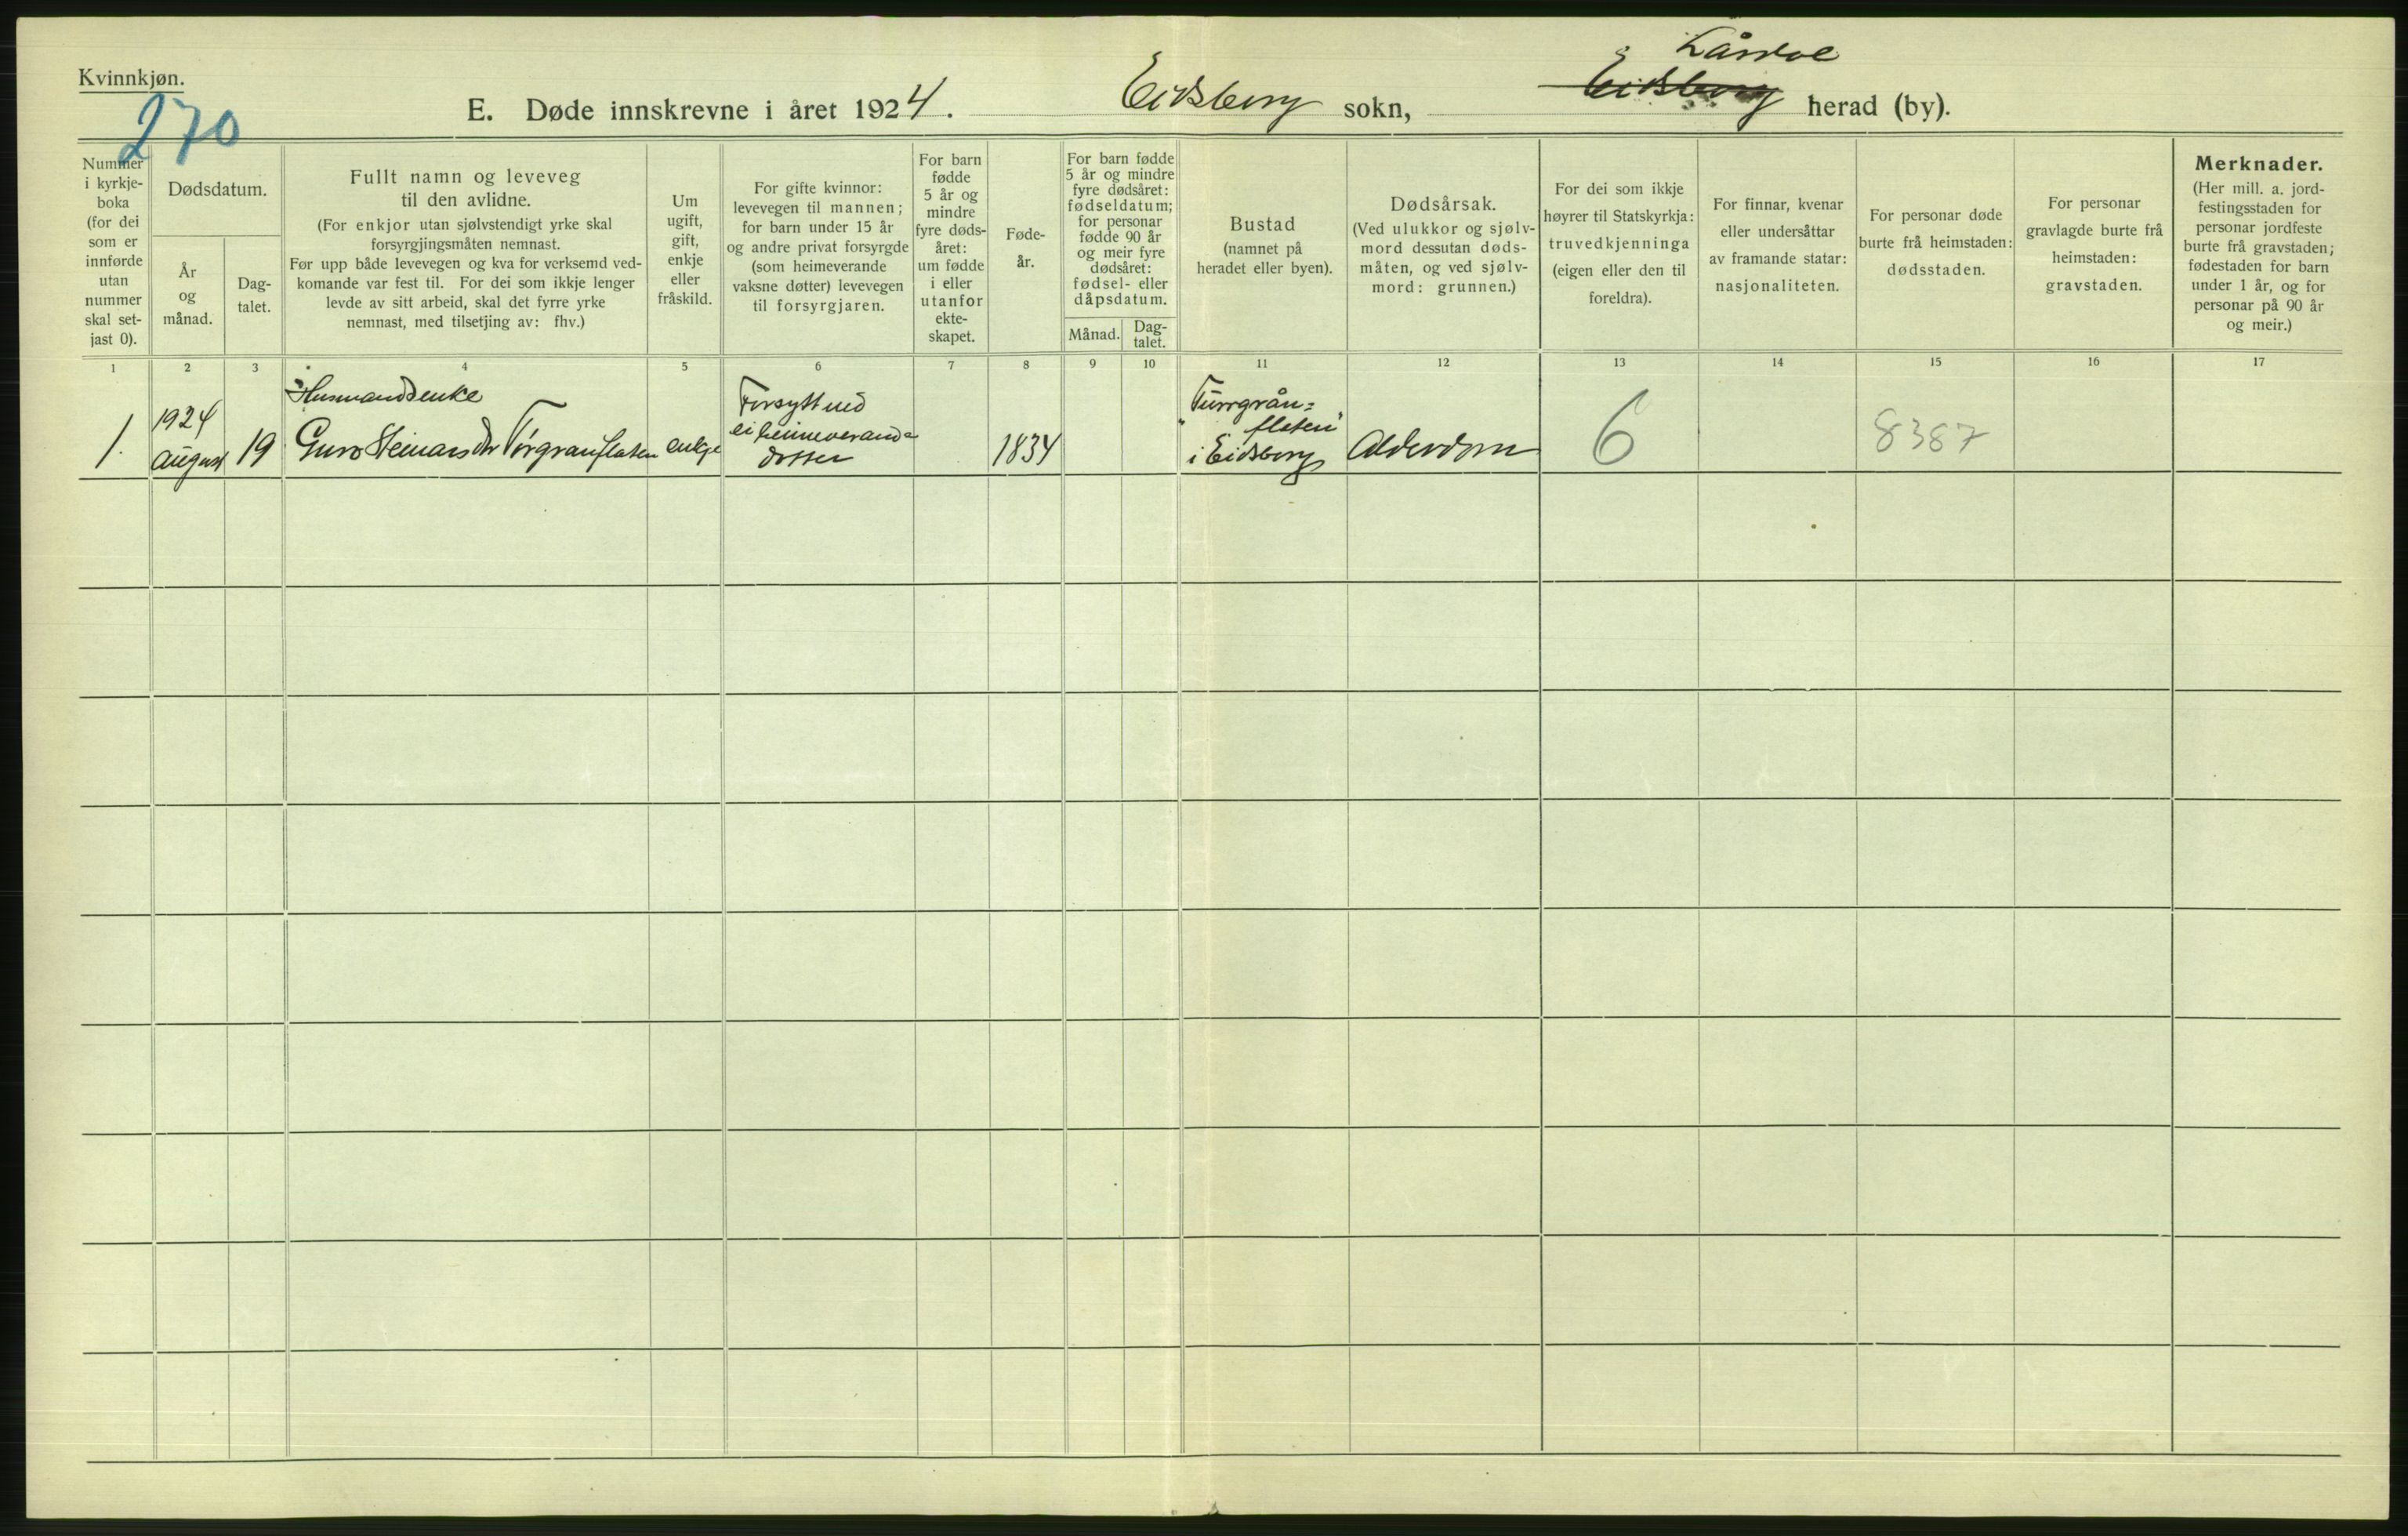 Kvinnkjøn.
270
E. Døde innskrevne i året 1924. Eidsborg sokn, Eidsborg Lårdal herad (by).
Nummer
i kyrkje-
boka
(for dei
som er
innførde
utan
nummer
skal set-
jast 0).
Dødsdatum.
År
og
månad.
Dag-
talet.
Fullt namn og leveveg
til den avlidne.
(For enkjor utan sjølvstendigt yrke skal
forsyrgjingsmåten nemnast.
Før upp både levevegen og kva for verksemd ved-
komande var fest til. For dei som ikkje lenger
levde av sitt arbeid, skal det fyrre yrke
nemnast, med tilsetjing av: fhv.)
Um
ugift,
gift,
enkje
eller
fråskild.
For gifte kvinnor:
levevegen til mannen;
for barn under 15 år
og andre privat forsyrgde
(som heimeverande
vaksne døtter) levevegen
til forsyrgjaren.
For barn
fødde
5 år og
mindre
fyre døds-
året:
um fødde
i eller
utanfor
ekte-
skapet.
Føde-
år.
For barn fødde
5 år og mindre
fyre dødsåret:
fødseldatum;
for personar
fødde 90 år
og meir fyre
dødsåret:
fødsel- eller
dåpsdatum.
Månad.
Dag-
talet.
Bustad
(namnet på
heradet eller byen).
Dødsårsak.
(Ved ulukkor og sjølv-
mord dessutan døds-
måten, og ved sjølv-
mord: grunnen.)
For dei som ikkje
høyrer til Statskyrkja:
truvedkjenninga
(eigen eller den til
foreldra).
For finnar, kvenar
eller undersåttar
av framande statar:
nasjonaliteten.
For personar døde
burte frå heimstaden:
dødsstaden.
For personar
gravlagde burte frå
heimstaden:
gravstaden.
Merknader.
(Her mill. a. jord-
festingsstaden for
personar jordfeste
burte frå gravstaden;
fødestaden for barn
under 1 år, og for
personar på 90 år
og meir.)
1 2 3 4 5 6 7 8 9 10 11 12 13 14 15 16 17
1.
1924
august
19
Husmandsenke
Guro Steinarsdtr Törgranflaten
enkje
Forsytt ued
ei heimeverand=
dotter
1834
Turrgrån=
flaten"
i Eidsborg
Alderdom
6
8387